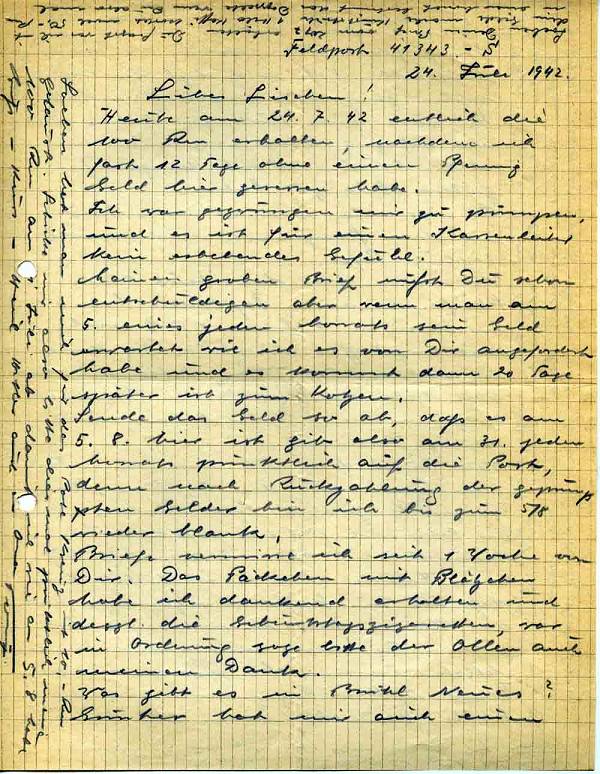 Feldpost 41343 - S
24. Juli 1942.
Liebes Lieschen!
Heute am 24. 7. 42 entlich die
100 Rm erhalten, nachdem ich
fast 12 Tage ohne einen Pfennig
Geld hier gesessen habe.
Ich war gezwungen mir zu pumpen,
und es ist für einen Kassenleiter
kein erhebendes Gefühl.
Meinen groben Brief mußt Du schon
entschuldigen aber wenn man am
5. eines jeden Monats sein Geld
erwartet wie ich es von Dir angefordert
habe und es kommt dann 20 Tage
später ist zum Kotzen.
Sende das Geld so ab, daß es am
5. 8. hier ist gib also am 31. jeden
Monats pünktlich auf die Post,
denn nach Rückzahlung der gepump
pten Gelder bin ich bis zum 5/8
wieder blank.
Briefe vermisse ich seit 1 Woche von
Dir. Das Päckchen mit Plätzchen
habe ich dankend erhalten und
desgl. die Geburtstagszigaretten, war
in Ordnung sage bitte der Ollen auch
meinen Dank.
Was gibt es in Brühl Neues?
Günther hat mir auch einen
Soeben hat man mir für das Rote Kreuz 10,- Rm
geklaut. Schicke mir also bitte
100 Rm am 5. 8. habe